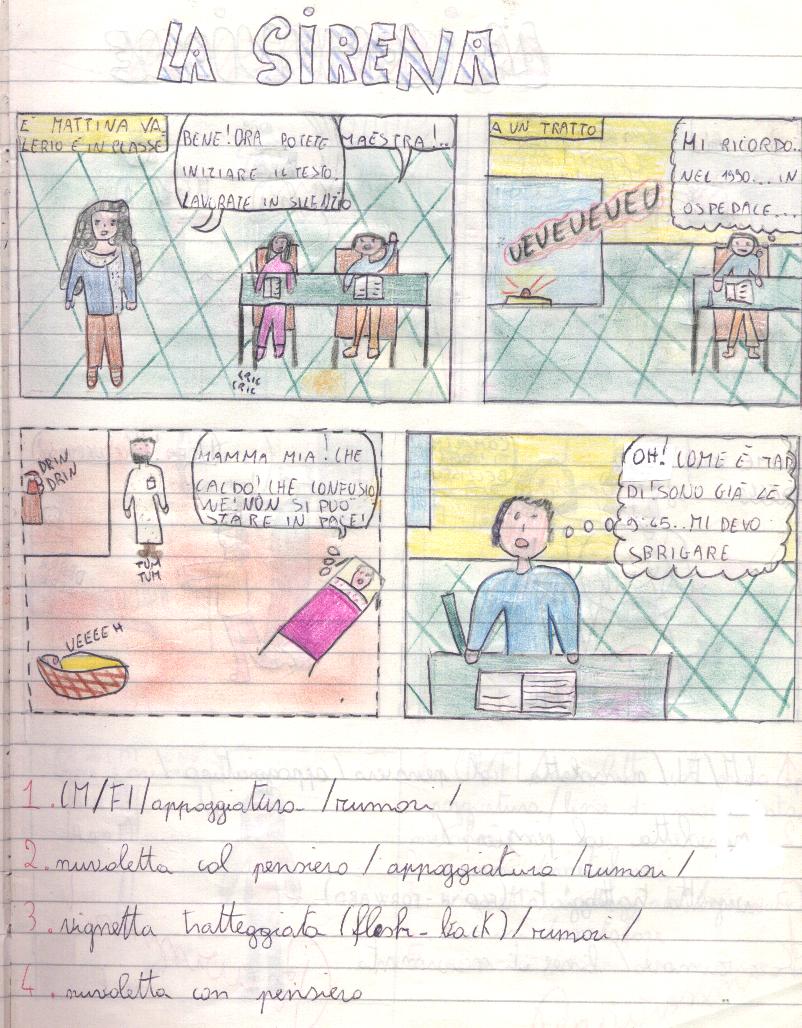 LA SIRENA
È MATTINA VA
LERIO È IN CLASSE
BENE! ORA POTETE
INIZIARE IL TESTO.
LAVORATE IN SILENZIO
MAESTRA!..
CRIC
CRIC
A UN TRATTO
UEUEUEUEU
MI RICORDO..
NEL 1990... IN
OSPEDALE...
DRIN
DRIN
TUM
TUM
MAMMA MIA! CHE
CALDO! CHE CONFUSIO
NE! NON SI PUÒ
STARE IN PACE!
UEEEEH
OH! COME È TAR
DI! SONO GIÀ LE
9:45.. MI DEVO
SBRIGARE
1. CM/FI/appoggiatura /rumori/
2. nuvoletta col pensiero / appoggiatura /rumori/
3. vignetta tratteggiata (flash-back)/rumori/
4. nuvoletta con pensiero